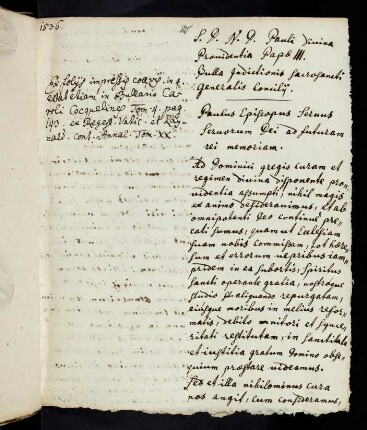 1536.
S. D. N. D. Pauli divina
Providentia Papæ III.
Bulla Indictionis Sacrosancti
Generalis Concilij.
Ex folijs impressis coævis in 4.
extat etiam in Bullario Ca
roli Cocquelines Tom. 4. pag.
143. ex Regest. Vatic. et Ray
nald. Cont. Annal. Tom. XX.
Paulus Episcopus Servus
Servorum Dei ad futuram
rei memoriam.
Ad Dominici gregis curam et
regimen divina disponente pro
videntia assumpti, nihil magis
ex animo desideravimus, et ab
omnipotenti Deo continue pre
cati sumus, quam ut Ecclesiam
suam nobis commissam, tot hære
sum et errorum vepribus iam
pridem in ea subortis, Spiritus
Sancti operante gratia, nostroque
studio aliquando repurgatam,
eiusque moribus in melius refor
matis, debito nitori et synce
ritati restitutam, in sanctitate
et iustitia gratum Domino obse
quium præstare videamus.
Sed et illa nihilominus cura
nos angit, cum consideramus,